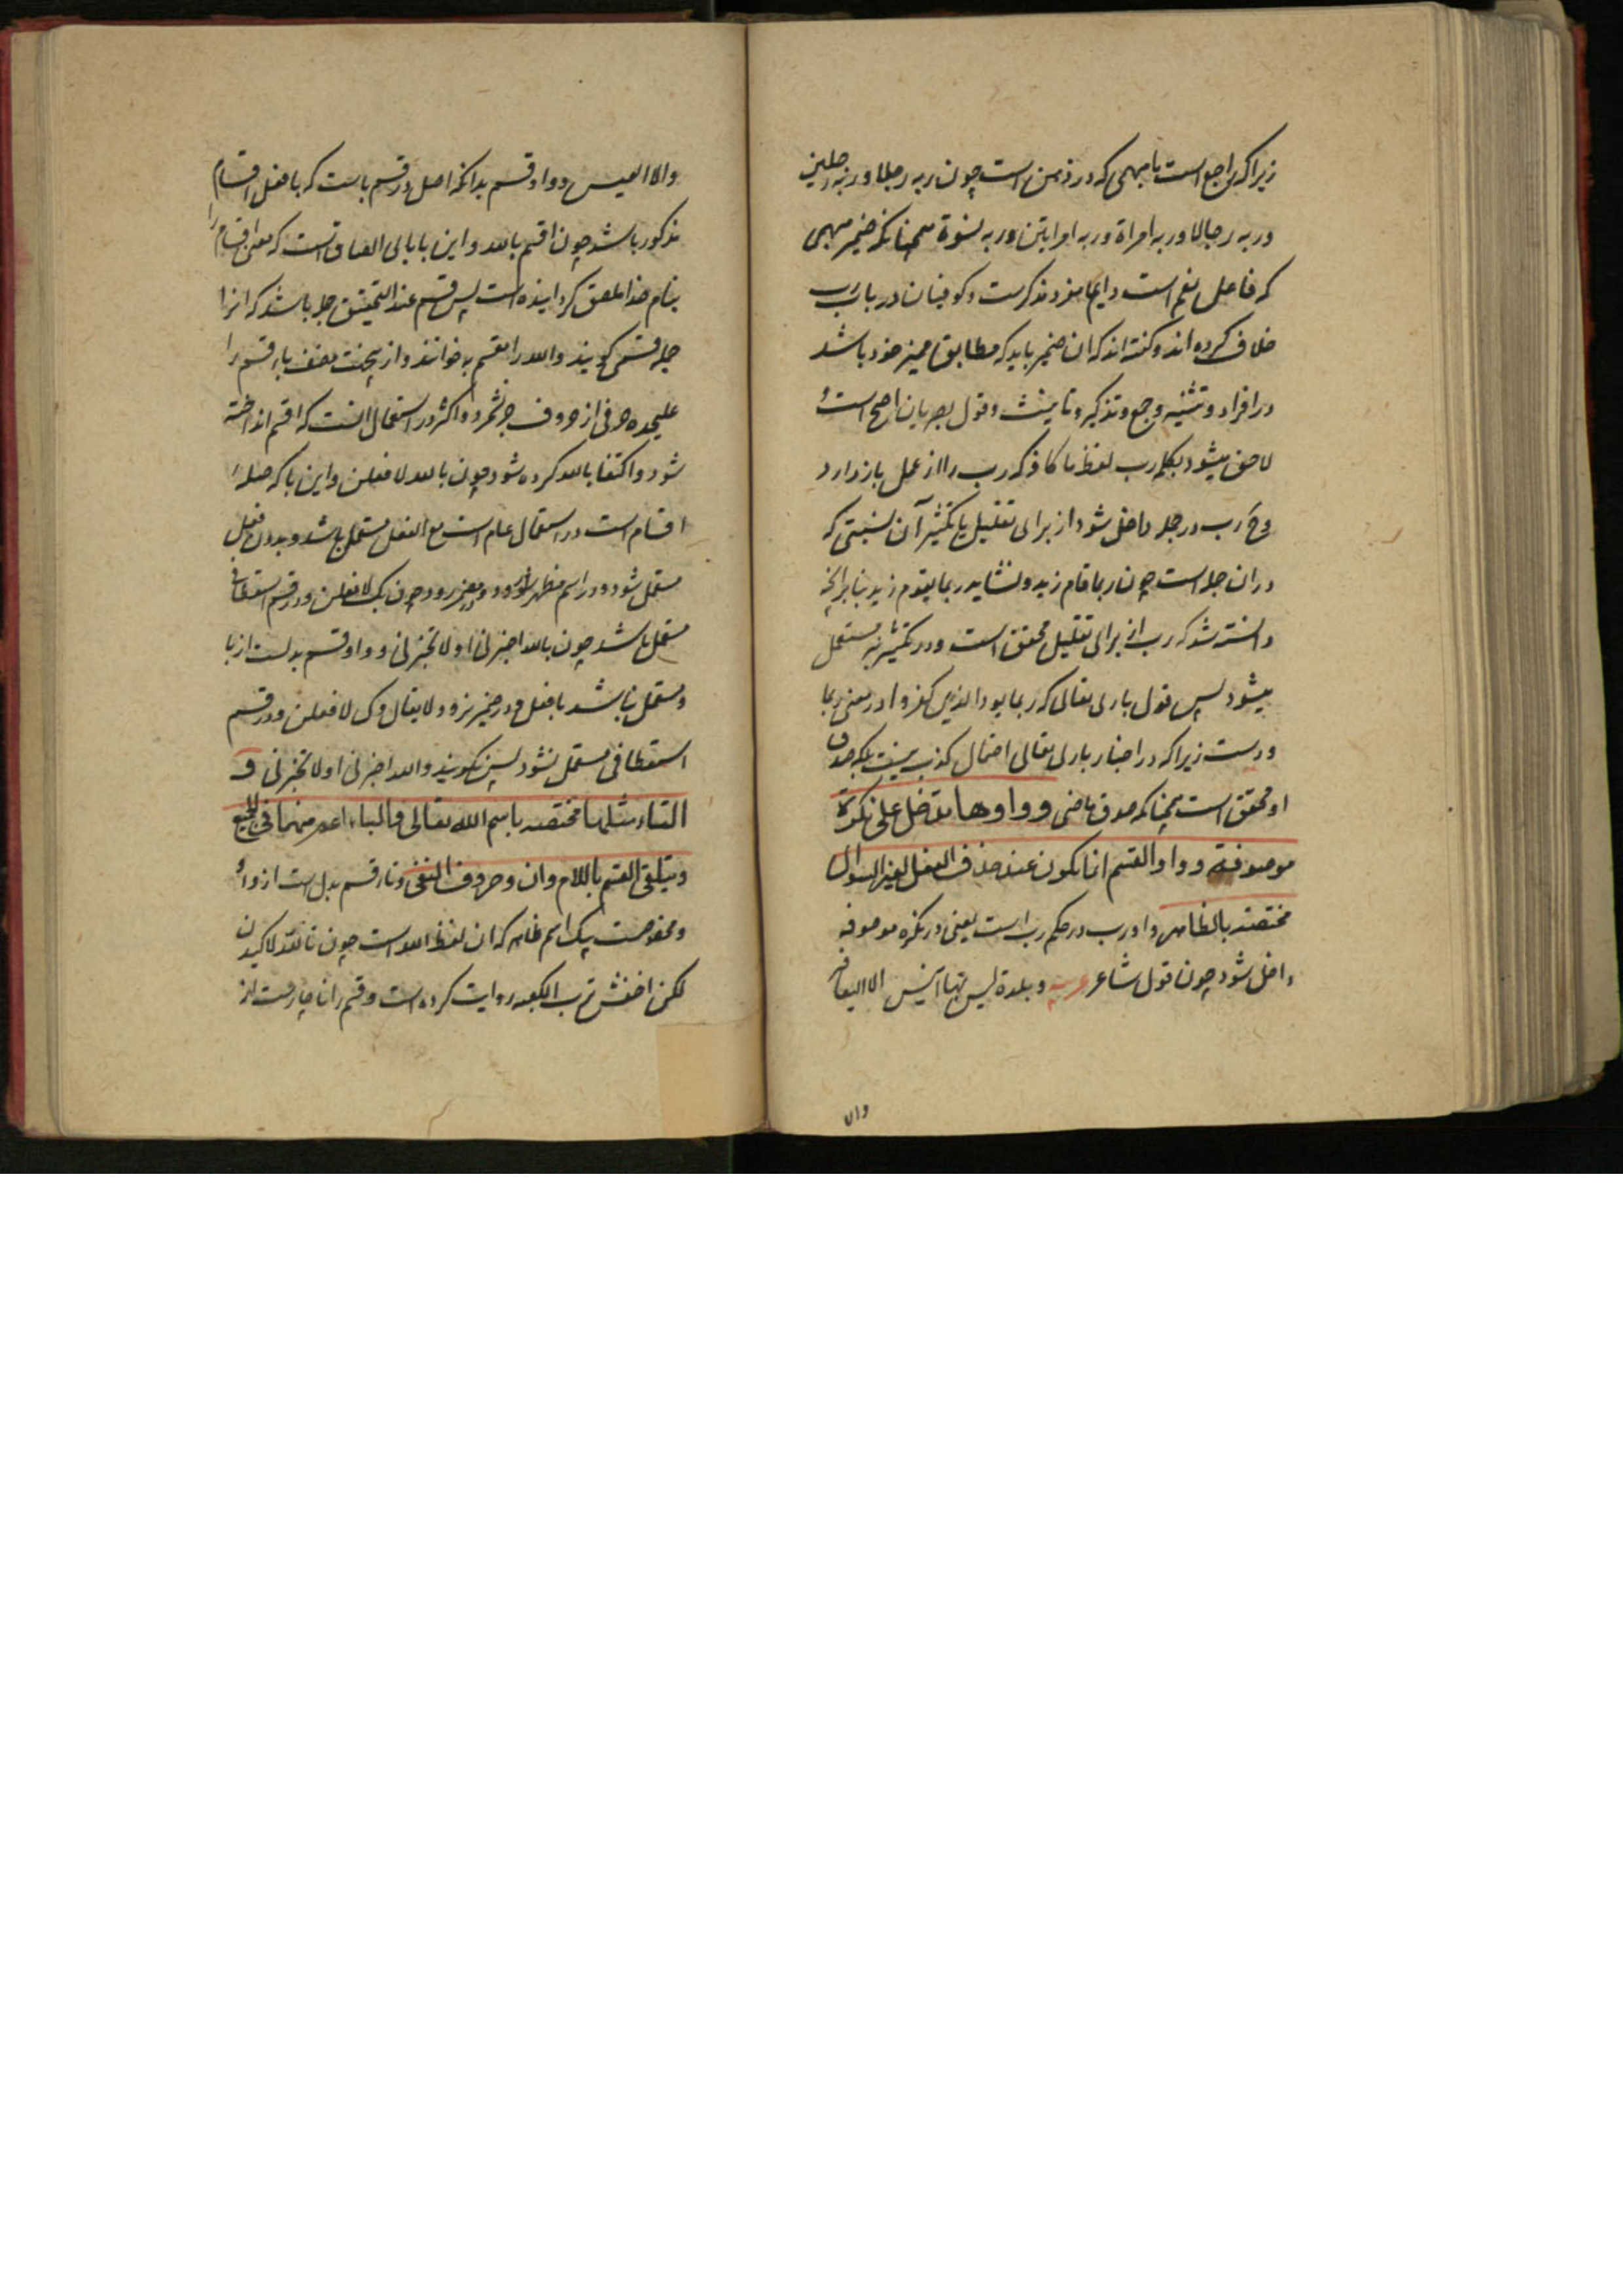 زیرا که راجع است بامبهمی که در ذهن است چون ربه رجلا وربه رجلین
وربه رجالا وربه امراة وربه امراتین وربه نسوة همچنانکه ضمیر مبهمی
که فاعل نعم است دایما مفرد مذکرست وکوفیان در باب رب
خلاف کرده اند وکفته اند که ان ضمیر باید که مطابق ممیز خود باشد
در افراد وتثنیه وجمع وتذکیر وتانیث وقول بصریان اصح است و
لاحق میشود بکلمه رب لفظ ما کافه که رب را از عمل بازدارد
وح رب در جمله داخل شود از برای تقلیل یا تکثیر آن نسبتی که
در ان جمله است چون ربما قام زید ونشاید ربما یقوم زید بنا برانچه
دانسته شد که رب از برای تقلیل محقق است ودر تکثیر نیز مستعمل
میشود پس قول باری تعالی که ربما یود الذین کفروا در معنی ربما
ودست زیرا که در اخبار باری تعالی احتمال کذب نیست بلکه صدق
او محقق است همچنانکه صدق ماضی وواوها تدخل علی نکرة
موصوفة وواو القسم انما تکون عند حذف الفعل لغیر السوال
مختصة بالظاهر واو رب در حکم رب است یعنی در نکره موصوفه
داخل شود چون قول شاعر عربیه وبلدة لیس بها انیس الا الیعافیر
والا
والا العیس وواو قسم بدانکه اصل در قسم باست که با فعل اقسام
مذکور باشد چون اقسم بالله واین با بای الصاق است که معنی اقسام را
بنام خدا ملصق کردانیده است پس قسم عند التحقیق جمله باشد که انرا
جمله قسمی کویند والله را مقسم به خوانند وازینجهت مصنف باء قسم را
علیحده حرفی از حروف جر نشمرد واکثر در استعمال انست که اقسم انداخته
شود واکتفا بالله کرده شود چون بالله لافعلن واین با که صله
اقسام است در استعمال عام است مع الفعل مستعمل باشد وبدون فعل
مستعمل شود ودر اسم مظهر رود ودر مضمر رود چون بک لافعلن ودر قسم استعطافی
مستعمل باشد چون بالله اخبرنی او لا تخبرنی وواو قسم بدلست از با
ومستعمل نباشد با فعل ودر ضمیر نرود ولا یقال وک لافعلن ودر قسم
استعطافی مستعمل نشود پس نکویند والله اخبرنی او لا تخبرنی و
التاء مثلها مختصة باسم الله تعالی والباء اعم منهما فی الجمیع
ویتلقی القسم باللام وان وحروف النفی وتاء قسم بدل است از واو
ومخصوصست بیک اسم ظاهر که ان لفظ الله است چون تالله لاکیدن
لکن اخفش ترب الکعبه روایت کرده است وقسم را ناچارست از